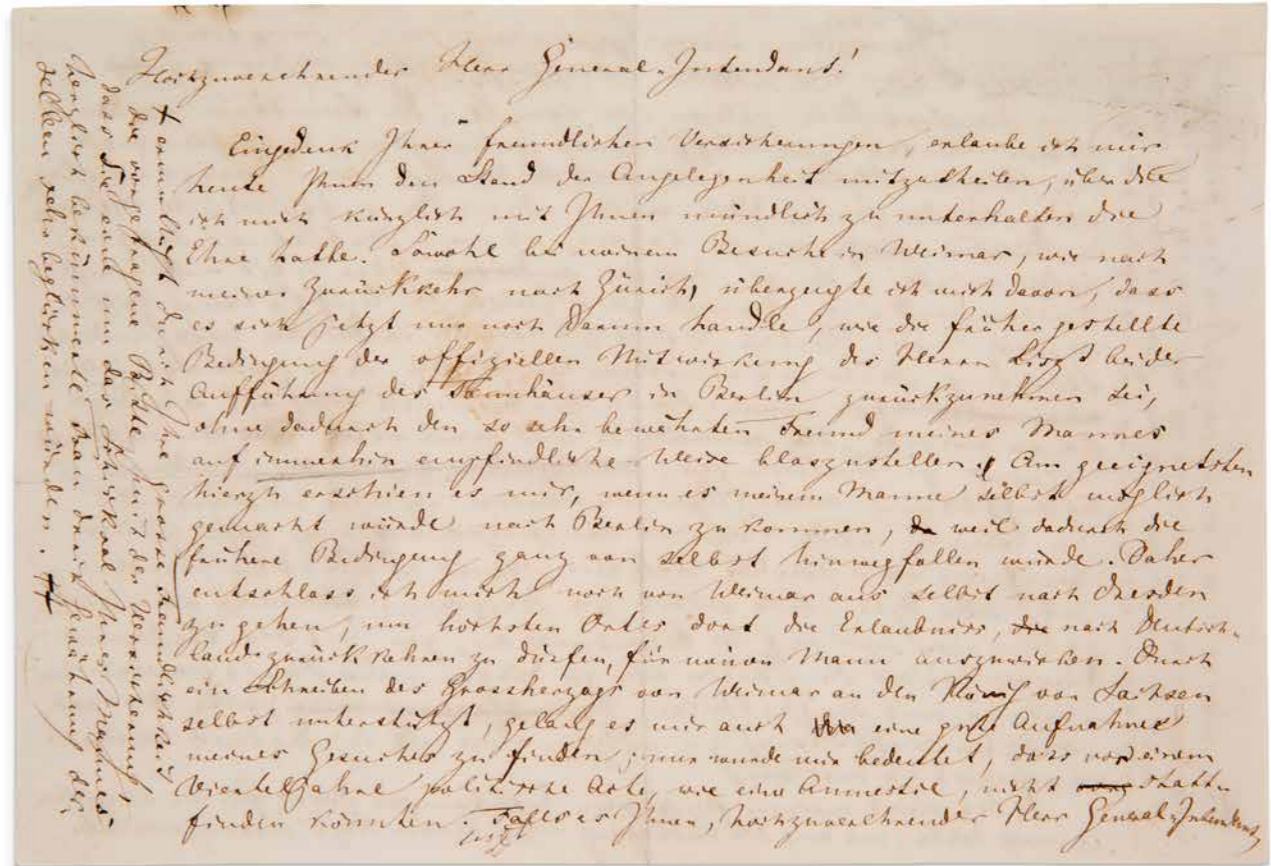 Hochzuverehrender Herr General-Intendant!
Eingedenk Ihrer freundlichen Versicherungen, erlaube ich mir
heute Ihnen den Stand der Angelegenheit mitzutheilen, über die
ich mich kürzlich mit Ihnen mündlich zu unterhalten die
Ehre hatte. Sowohl bei meinem Besuche in Weimar, wie nach
meiner Zurückkehr nach Zürich, überzeugte ich mich davon, dass
es sich jetzt nur noch darum handle, wie die früher gestellte
Bedingung der offiziellen Mitwirkung des Herrn Liszt bei der
Aufführung des Tannhäuser in Berlin zurückzunehmen sei,
ohne dadurch den so sehr bewährten Freund meines Mannes
auf immerhin empfindliche Weise blaszustellen. Am geeignetsten
hierzu erschien es mir, wenn es meinem Manne selbst möglich
gemacht würde nach Berlin zu kommen, da weil dadurch die
frühere Bedingung ganz von selbst hinwegfallen würde. Daher
entschloss ich mich noch von Weimar aus selbst nach Dresden
zu gehen, um höchsten Ortes dort die Erlaubniss, die nach Deutsch-
land zurückkehren zu dürfen, für meinen Mann auszuwirken. Durch
ein Schreiben des Grossherzogs von Weimar an den König von Sachsen
selbst unterstützt, gelang es mir auch eine gute Aufnahme
meines Gesuches zu finden; nur wurde mir bedeutet, dass vor einem
Vierteljahre politische Acte, wie eine Amnestie, nicht statt-
finden könnten. Falls es Ihnen, hochzuverehrender Herr General-Intendant,
+ ermuthigt durch Ihre grosse Freundlichkeit
die vorgetragene Bitte mit der Versicherung,
dass Sie eine um das Schicksal ihres Mannes
herzlich bekümmerte Frau durch Gewährung der-
selben sehr beglücken würden. +